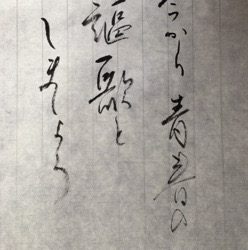 今から青春の
謳歌と
しましょう